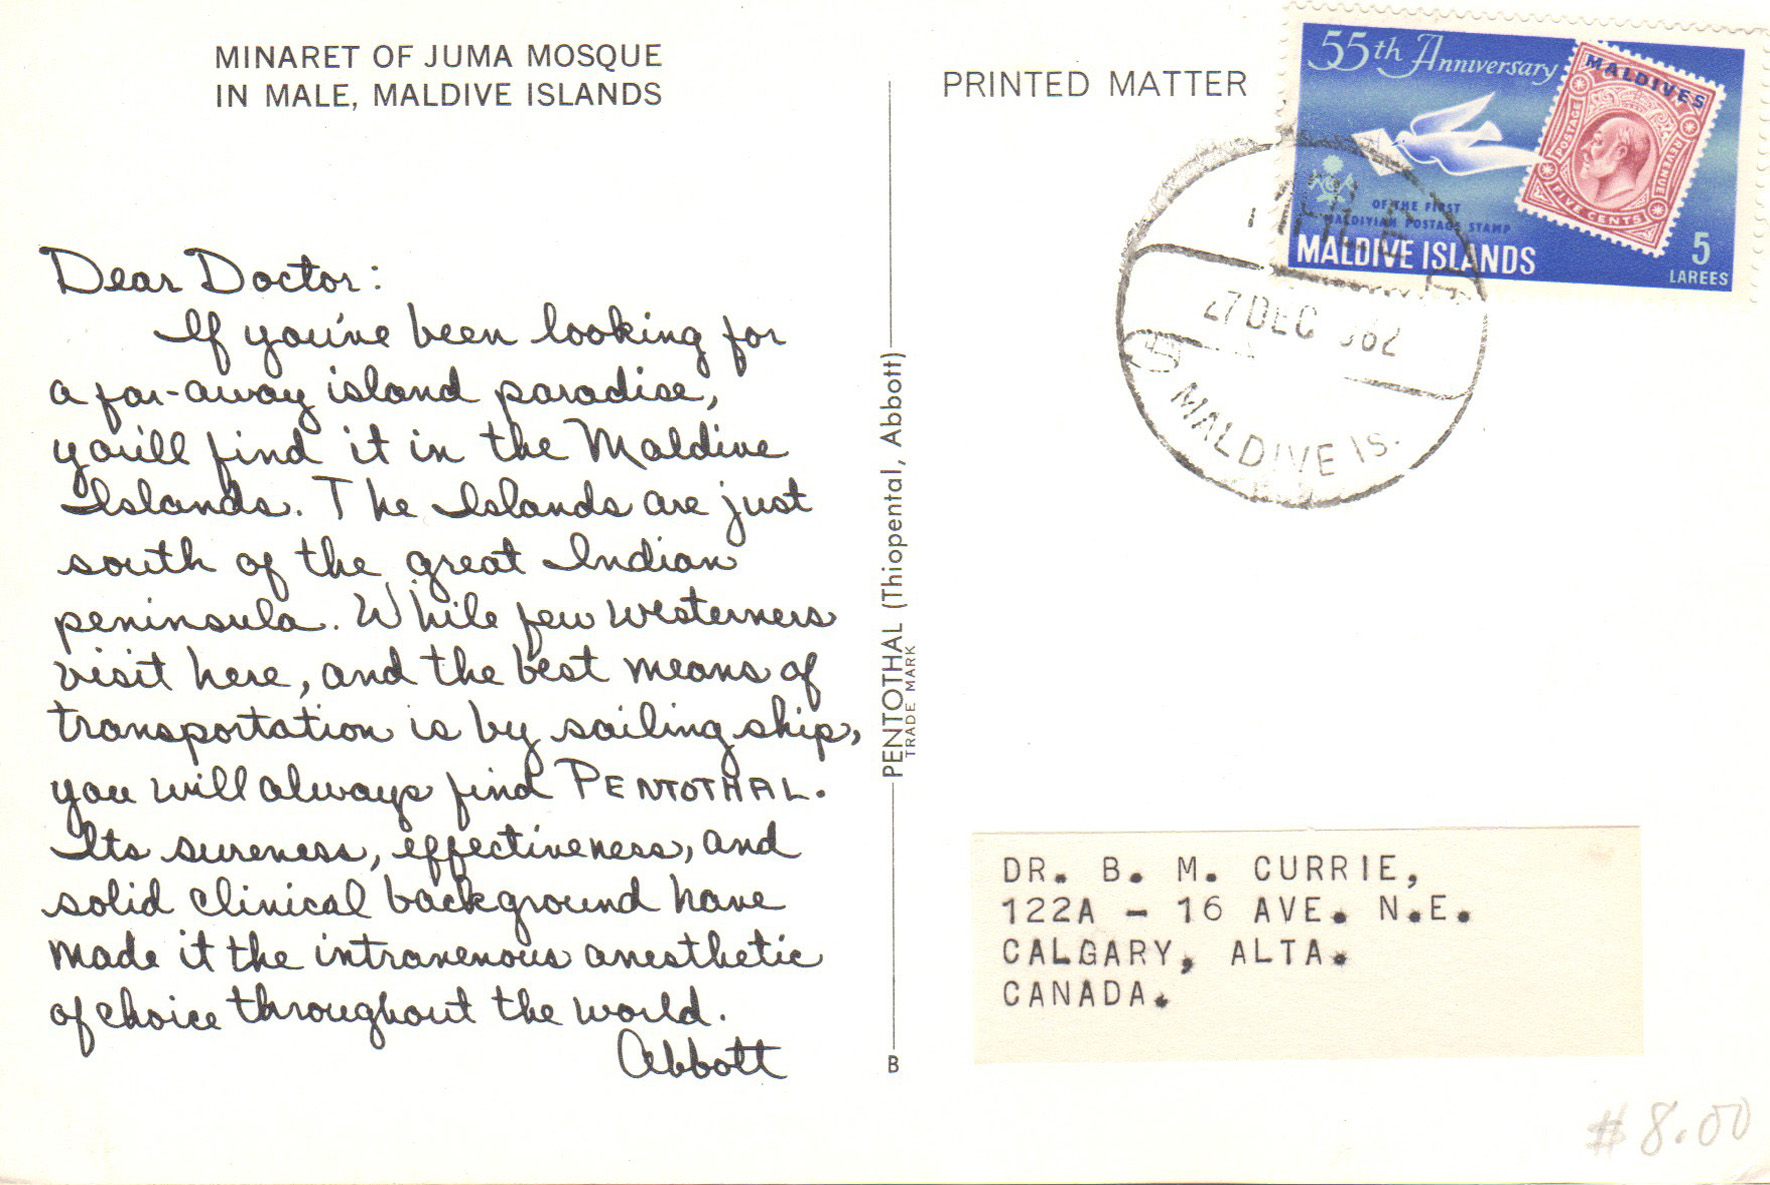 MINARET OF JUMA MOSQUE
IN MALE, MALDIVE ISLANDS
Dear Doctor:
If you've been looking for
a far-away island paradise,
you'll find it in the Maldive
Islands. The Islands are just
south of the great Indian
peninsula. While few westerners
visit here, and the best means of
transportation is by sailing ship,
you will always find PENTOTHAL.
Its sureness, effectiveness, and
solid clinical background have
made it the intravenous anesthetic
of choice throughout the world.
Abbott
PENTOTHAL (Thiopental, Abbott)
TRADE MARK
B
PRINTED MATTER
55th Anniversary
MALDIVES
POSTAGE
REVENUE
FIVE CENTS
OF THE FIRST
MALDIVIAN POSTAGE STAMP
MALDIVE ISLANDS
5
LAREES
27 DEC 962
MALDIVE IS.
DR. B. M. CURRIE,
122A - 16 AVE. N.E.
CALGARY, ALTA.
CANADA.
#8.00